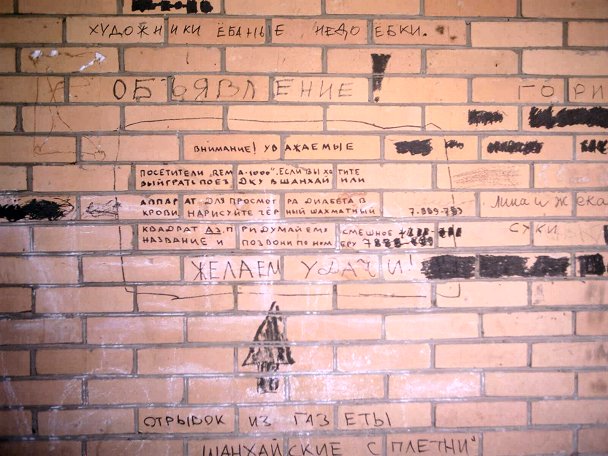 ХУДОЖНИКИ ЁБАНЫЕ НЕДОЁБКИ.
ОБЪЯВЛЕНИЕ!
ГОРИ
ВНИМАНИЕ! УВАЖАЕМЫЕ
ПОСЕТИТЕЛИ "REMA-1000". ЕСЛИ ВЫ ХОТИТЕ
ВЫЙГРАТЬ ПОЕЗДКУ В ШАНХАЙ ИЛИ
АППАРАТ ДЛЯ ПРОСМОТРА ДИАБЕТА В
КРОВИ НАРИСУЙТЕ ЧЕРНЫЙ ШАХМАТНЫЙ
ЛИНА И ЖЕКА
КВАДРАТ ПРИДУМАЙ ЕМУ СМЕШНОЕ
СУКИ
НАЗВАНИЕ И ПОЗВОНИ ПО НОМЕРУ
ЖЕЛАЕМ УДАЧИ!
ОТРЫВОК ИЗ ГАЗЕТЫ
ШАНХАЙСКИЕ СПЛЕТНИ"